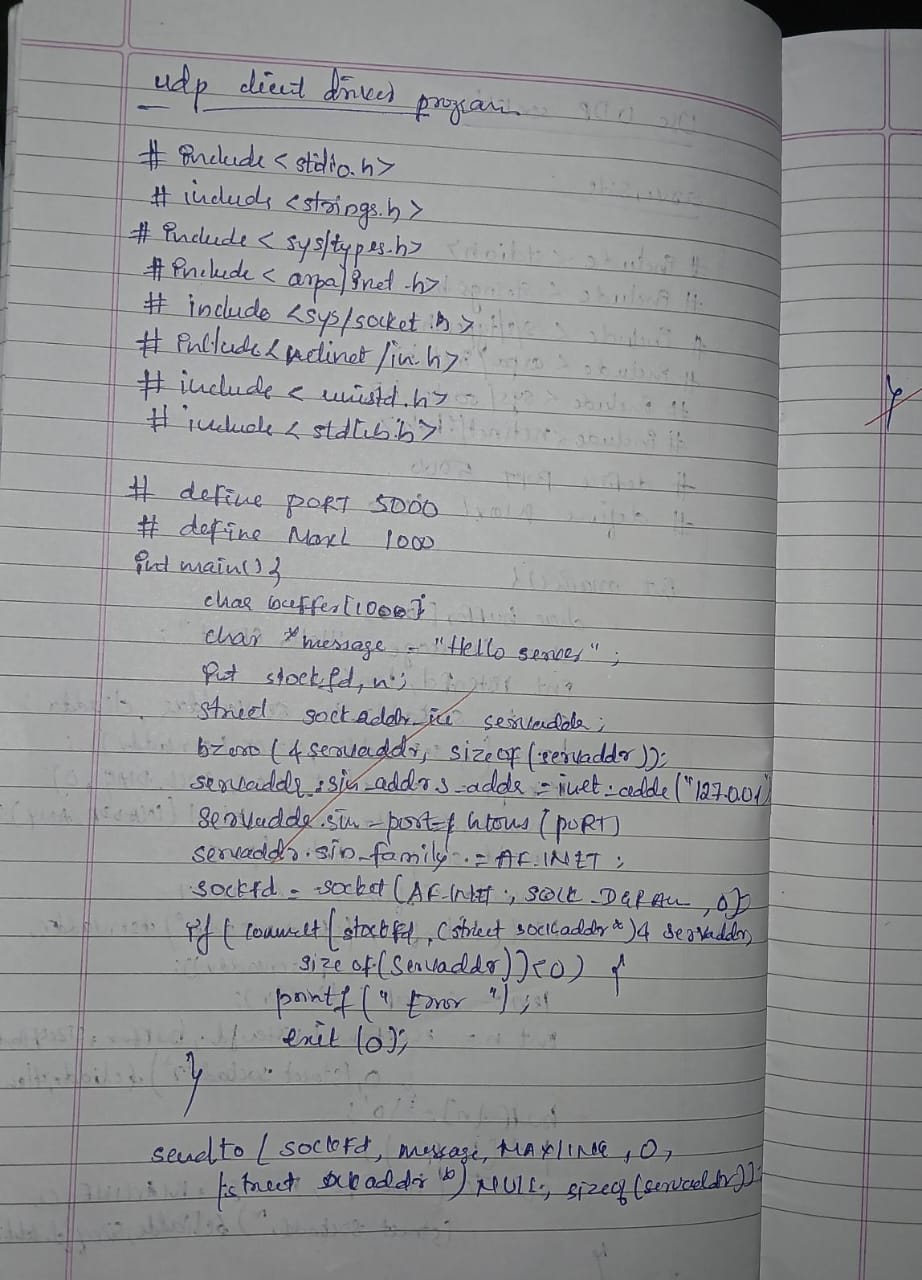 udp client driver program
# include <stdio.h>
# include <strings.h>
# include < sys/types.h>
# include < arpa/inet .h>
# include <sys/socket .h>
# include < netinet /in.h>
# include < unistd.h>
# include < stdlib.h>
# define PORT 5000
# define MaxL 1000
int main() {
char buffer[1000];
char *message = "Hello server" ;
int stockfd, n ;
struct sockaddr_in servaddr ;
bzero ( & servaddr, sizeof (servaddr));
servaddr . sin_addr.s_addr = inet - addr ("127.0.0.1
servaddr . sin - port = htons (PORT)
servaddr . sin_family . = AF_INET ;
sockfd = socket (AF_INET , SOCK _DGRAM , 0);
if ( connect ( stockfd , (struct sockaddr *) & servaddr,
size of (servaddr)) <0) {
printf (" Error ") ;
exit (0);
}
sendto ( sockfd, message, MAXLINE , 0,
(struct sockaddr *) NULL, sizeof (servaddr));